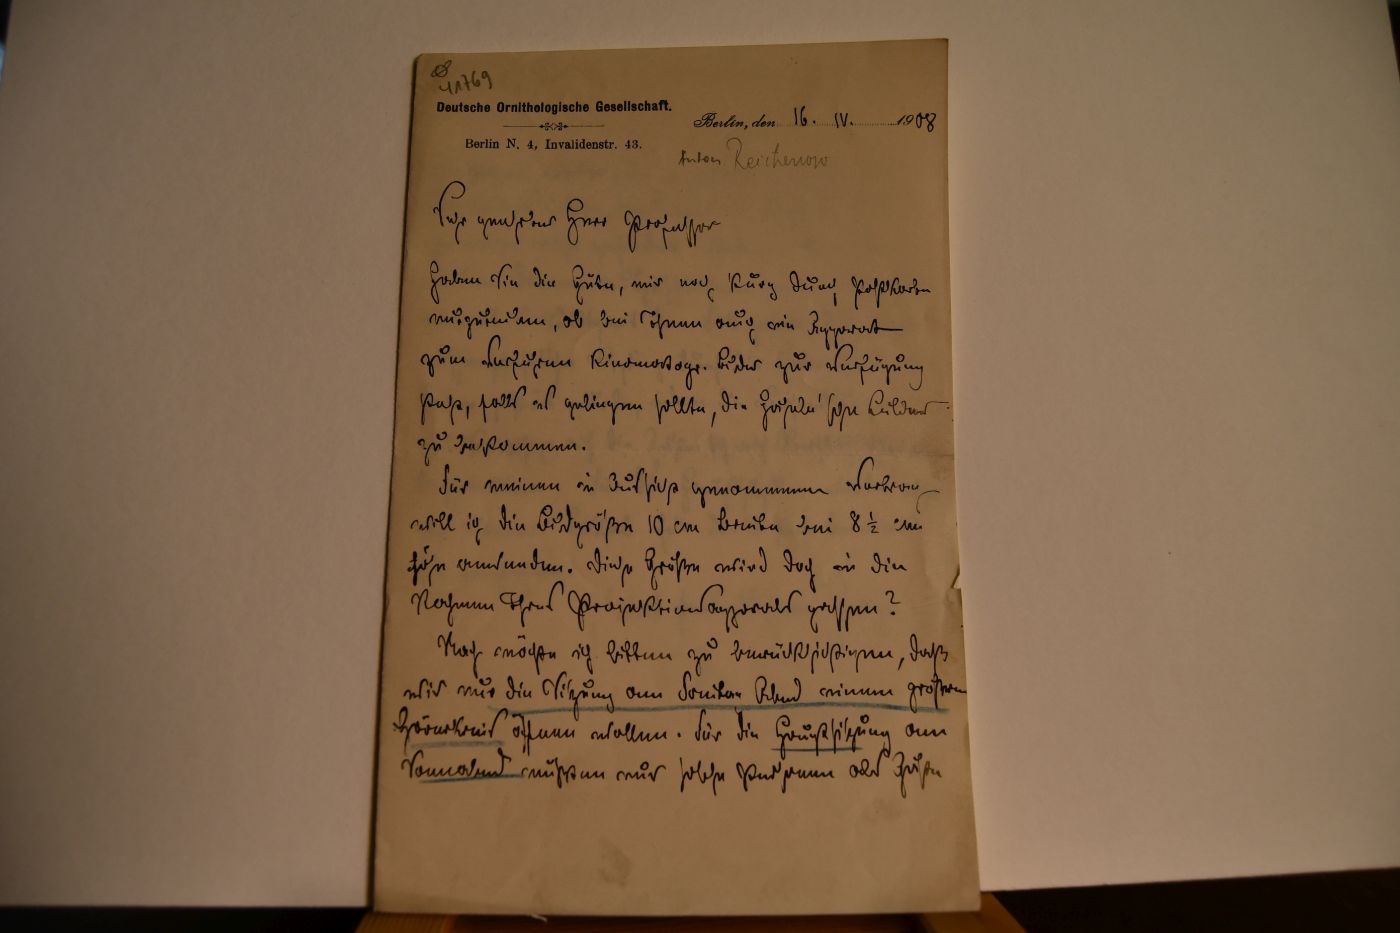 41769
Deutsche Ornithologische Gesellschaft.
Berlin N. 4, Invalidenstr. 43.
Berlin, den 16. IV. 1908
Anton Reichenow
Sehr geehrter Herr Professor
Haben Sie die Güte, mir noch kurz durch Postkarte
mitzuteilen, ob bei Ihnen auch ein Apparat
zum Vorführen kinematogr. Bilder zur Verfügung
steht, falls es gelingen sollte, die
zu bekommen.
Für meinen in Aussicht genommenen Vortrag
will ich die Bildgröße 10 cm Breite bei 8 ½ cm
Höhe anwenden. Diese Größe wird doch in die
Rahmen Ihres Projektionsapparats passen?
Noch möchte ich bitten zu berücksichtigen, daß
wir nur die Sitzung am Abend einem größeren
Hörerkreis öffnen wollen. Für die Hauptsitzung am
Sonnabend müßten nur solche Personen als Gäste